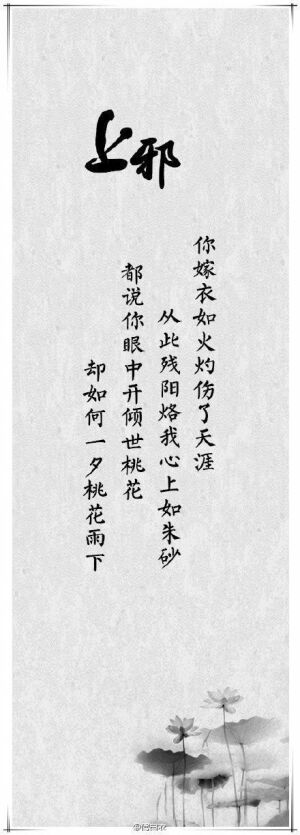 上邪
你嫁衣如火灼伤了天涯
从此残阳烙我心上如朱砂
都说你眼中开倾世桃花
却如何一夕桃花雨下